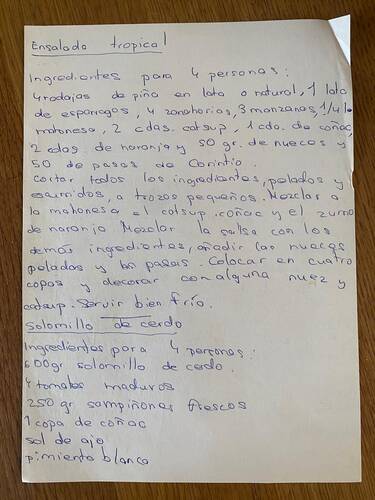 Ensalada tropical
Ingredientes para 4 personas:
4 rodajas de piña en lata o natural, 1 lata
de esparragos, 4 zanahorias, 3 manzanas, 1/4 de
mahonesa, 2 cdas. catsup, 1 cda. de coñac,
2 cdas. de naranja y 50 gr. de nueces y
50 de pasas de Corintio.
Cortar todos los ingredientes, pelados y
escurridos, a trozos pequeños. Mezclar a
la mahonesa el catsup, coñac y el zumo
de naranja Mezclar la salsa con los
demás ingredientes, añadir las nueces
peladas y las pasas. Colocar en cuatro
copas y decorar con alguna nuez y
catsup. Servir bien frío.
Solomillo de cerdo
Ingredientes para 4 personas:
600gr solomillo de cerdo.
4 tomates maduros
250 gr sampiñones frescos
1 copa de coñac
sal de ajo
pimienta blanca